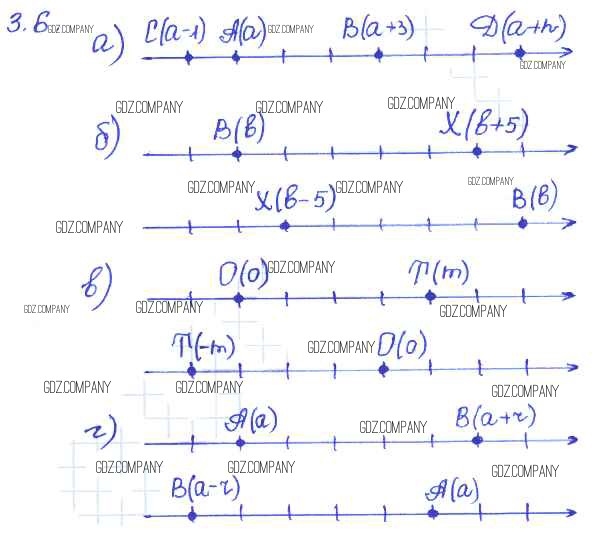 3.6 GDZ.COMPANY
а) C(a-1) A(a) GDZ.COMPANY B(a+3) D(a+n)
GDZ.COMPANY
GDZ.COMPANY GDZ.COMPANY GDZ.COMPANY
б) B(b) X(b+5)
GDZ.COMPANY GDZ.COMPANY GDZ.COMPANY
X(b-5) B(b)
GDZ.COMPANY
в) O(0) GDZ.COMPANY T(m)
GDZ.COMPANY GDZ.COMPANY GDZ.COMPANY
T(-m) GDZ.COMPANY O(0)
GDZ.COMPANY GDZ.COMPANY GDZ.COMPANY
г) A(a) GDZ.COMPANY B(a+r)
GDZ.COMPANY GDZ.COMPANY GDZ.COMPANY
B(a-r) A(a)